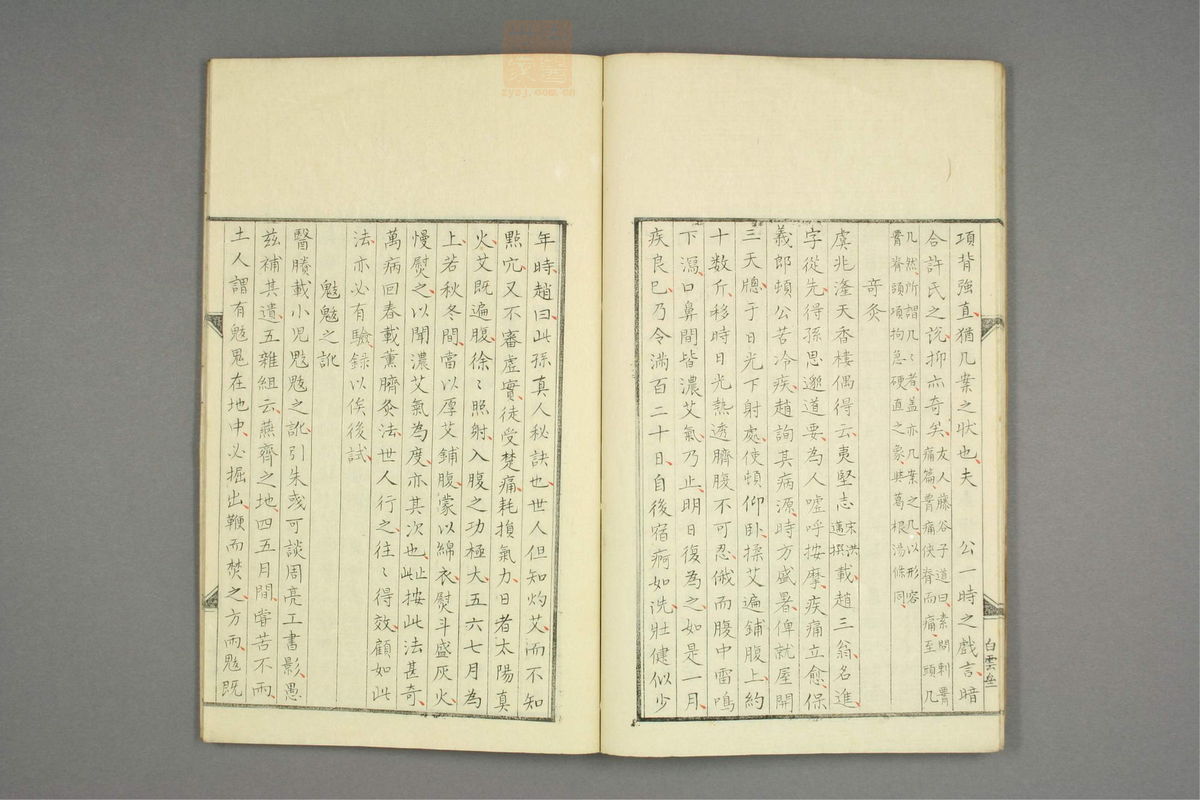 項背強直猶几案之狀也夫　公一時之戲言暗
合許氏之說抑亦奇矣友人藤谷子道曰素問刺腰痛篇腰痛俠脊而痛至頭几
几然所謂几〻者蓋亦几案之几以形容腰脊頭項拘急硬直之象與葛根湯條同
奇灸
虞兆漋天香樓偶得云夷堅志宋洪邁撰載趙三翁名進
字從先得孫思邈道要為人噓呼按摩疾痛立愈保
義郎頓公苦冷疾趙詢其病源時方盛暑俾就屋開
三天牕于日光下射處使頓仰臥揉艾遍鋪腹上約
十數斤移時日光熱透臍腹不可忍俄而腹中雷鳴
下瀉口鼻間皆濃艾氣乃止明日復為之如是一月
疾良已乃令滿百二十日自後宿痾如洗壯健似少
年時趙曰此孫真人秘訣也世人但知灼艾而不知
點穴又不審虛實徒受楚痛耗損氣力日者太陽真
火艾既遍腹徐〻照射入腹之功極大五六七月為
上若秋冬間當以厚艾鋪腹蒙以綿衣熨斗盛灰火
慢熨之以聞濃艾氣為度亦其次也止此按此法甚奇
萬病回春載薰臍灸法世人行之往〻得效顧如此
法亦必有驗録以俟後試
魃魃之訛
醫賸載小児魃魃之訛引朱彧可談周亮工書影愚
茲補其遺五雜組云燕齊之地四五月間嘗苦不雨
土人謂有魃鬼在地中必掘出鞭而焚之方雨魃既
白雲叁
zysj.com.cn